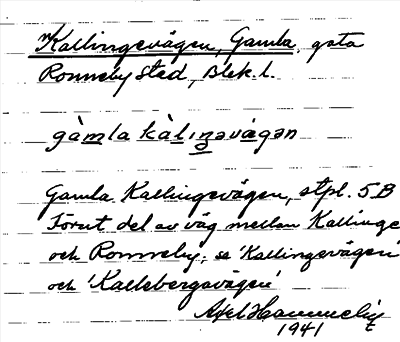 Kallingevägen, Gamla, gata
Ronneby stad, Blek. l.
gàmla kàlıŋəvägən
Gamla Kallingevägen, stpl. 5B
Förut del av väg mellan Kallinge
och Ronneby, se 'Kallingevägen'
och 'Kallebergavägen'
Axel
1941